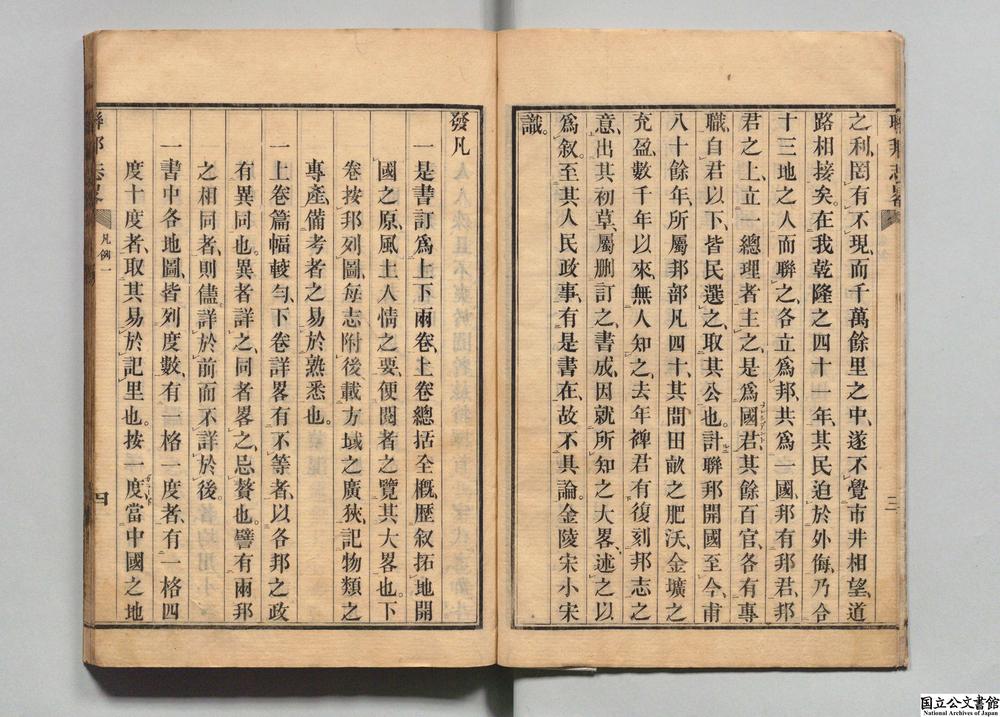 聯邦志畧
三
之利、罔有不現、而千萬餘里之中、遂不覺市井相望、道
路相接矣。在我乾隆之四十一年、其民迫於外侮、乃合
十三地之人而聯之、各立爲邦、共爲一國、邦有邦君、邦
君之上、立一總理者主之、是爲國君、其餘百官、各有專
職、自君以下、皆民選之、取其公也。計聯邦開國至今、甫
八十餘年、所屬邦部凡四十、其間田畝之肥沃、金壙之
充盈、數千年以來、無人知之、去年裨君有復刻邦志之
意、出其初草、屬删訂之、書成、因就所知之大畧、述之以
爲叙。至其人民政事、有是書在、故不具論。金陵宋小宋
識。
發凡
一是書訂爲上下兩卷、上卷總括全概、歷叙拓地開
國之原、風土人情之要、便閱者之覽其大畧也。下
卷按邦列圖、每志附後、載方域之廣狹、記物類之
專產、備考者之易於熟悉也。
一上卷篇幅較勻、下卷詳畧有不等者、以各邦之政
有異同也。異者詳之、同者畧之、忌贅也。譬有兩邦
之相同者、則儘詳於前而不詳於後。
一書中各地圖、皆列度數、有一格一度者、有一格四
度十度者、取其易於記里也。按一度、當中國之地
聯邦志畧
凡例一
四
国立公文書館
National Archives of Japan